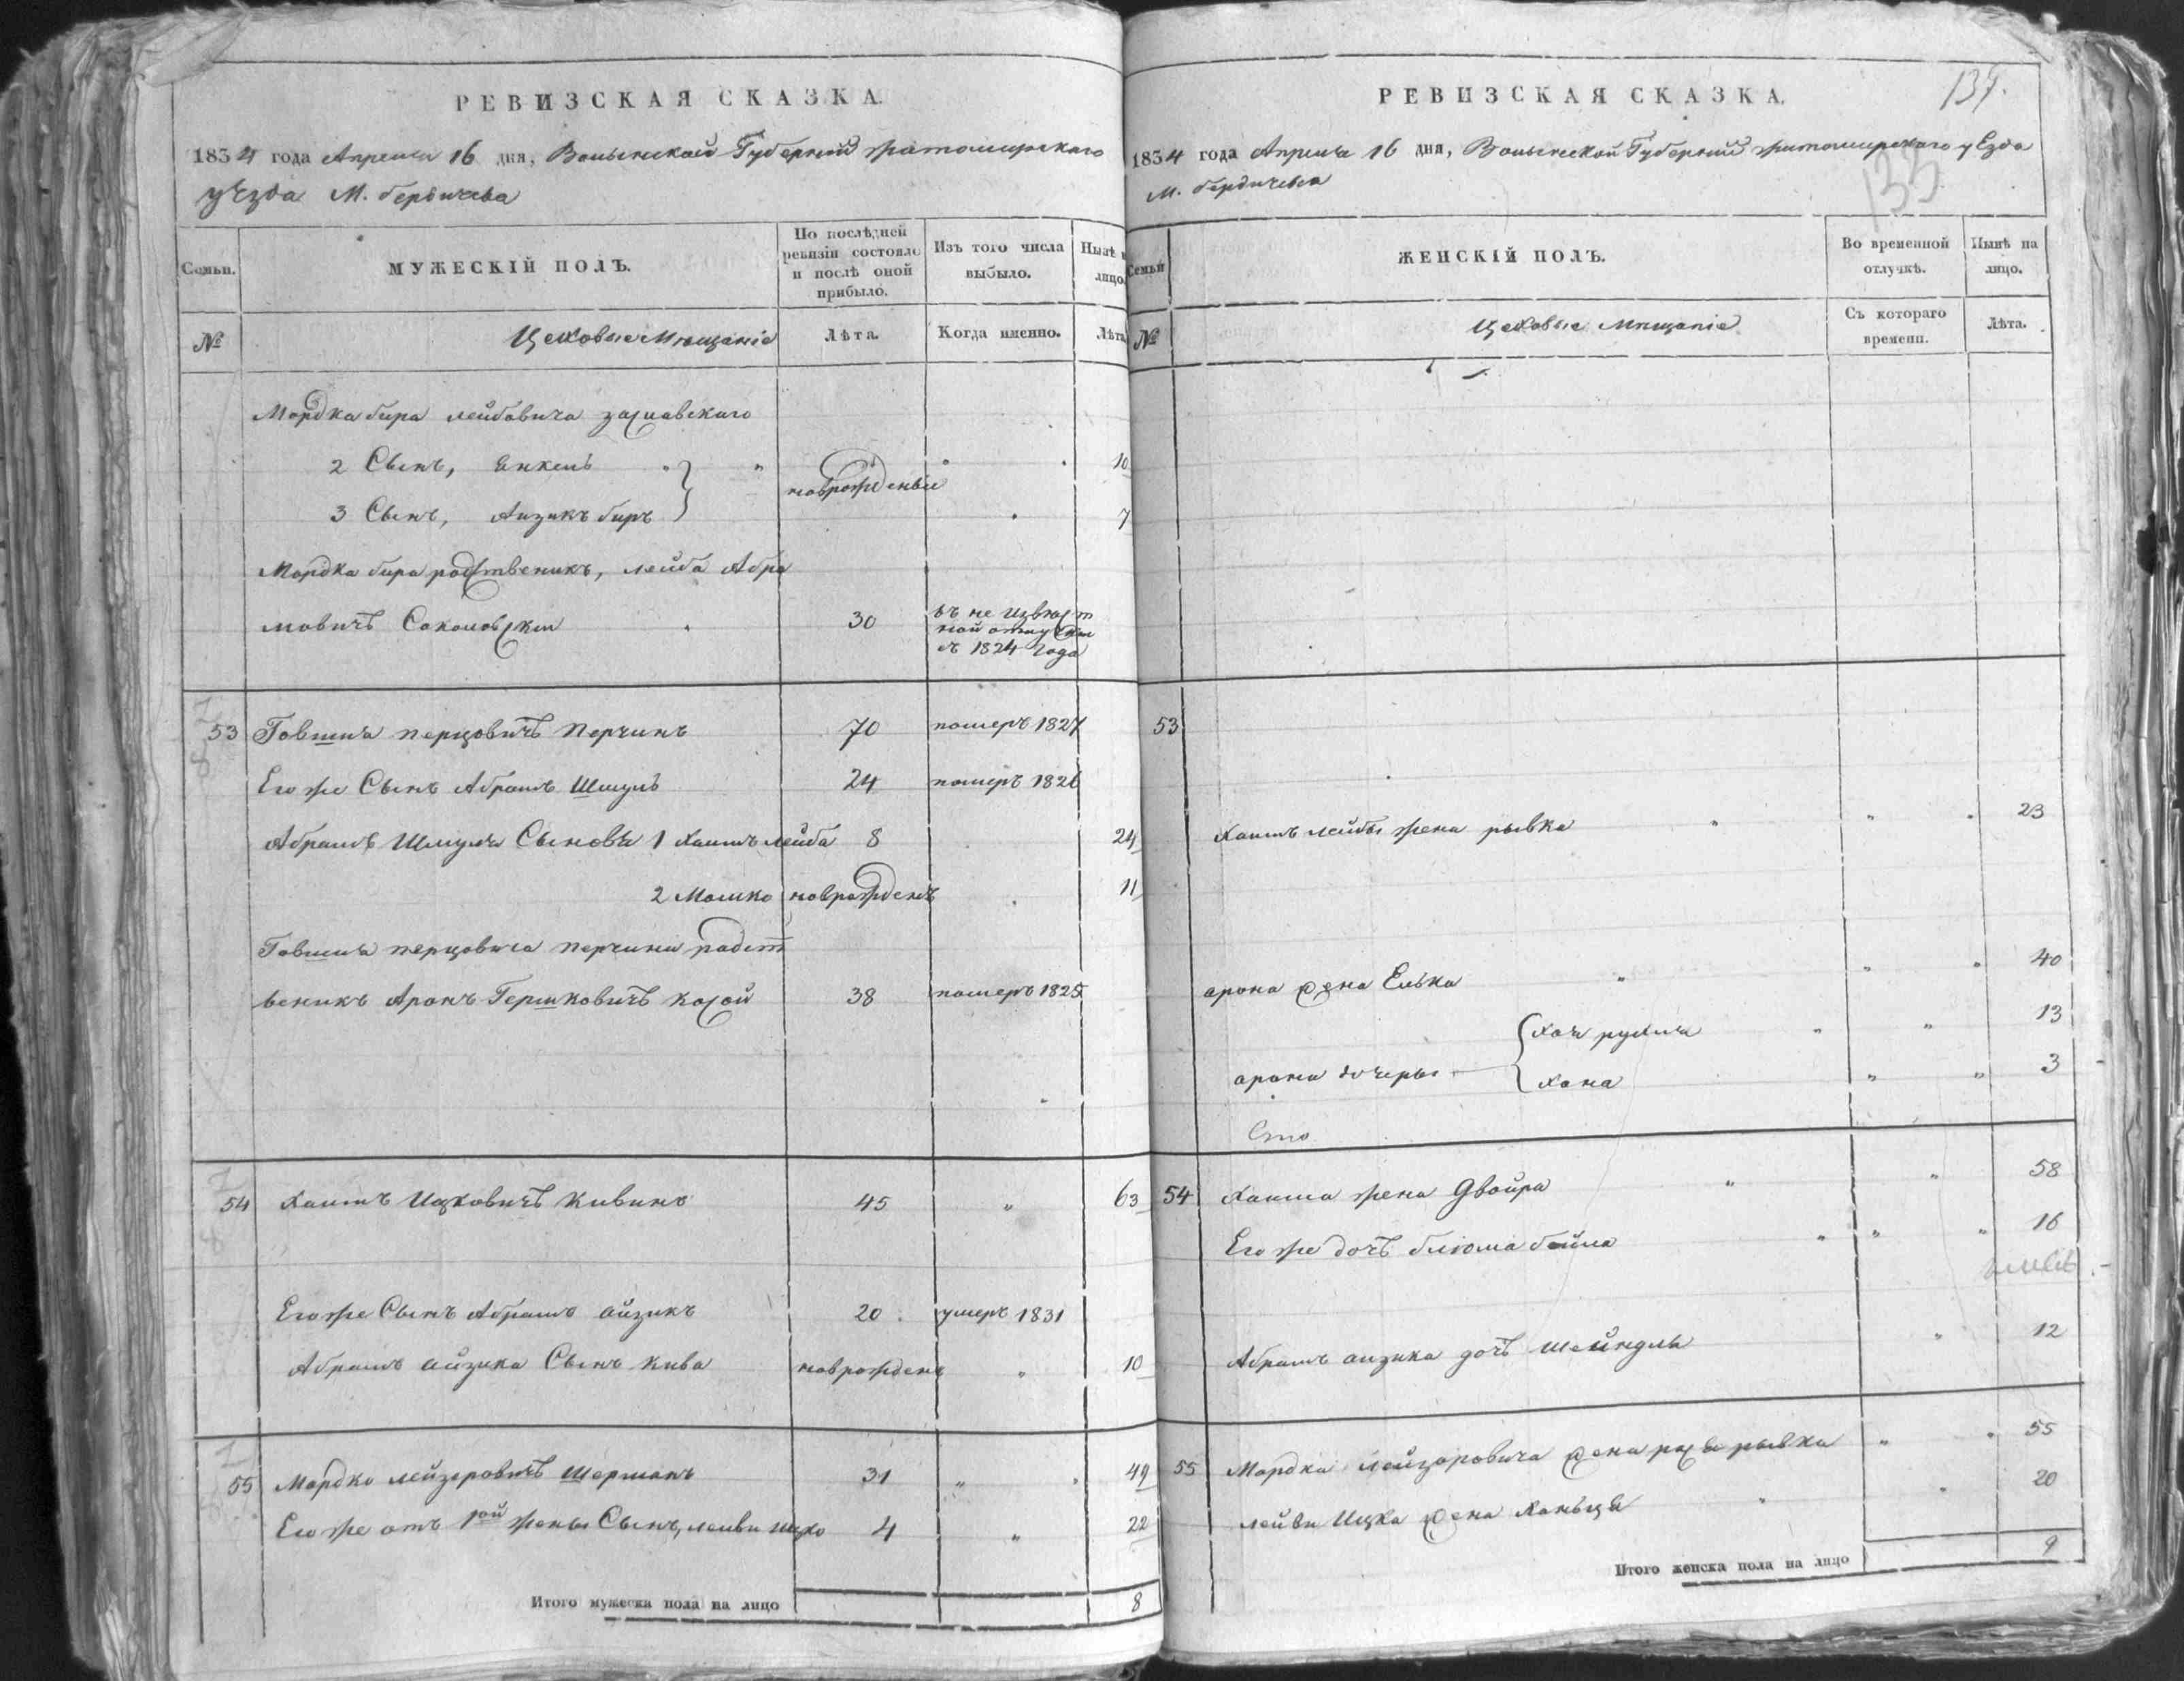 РЕВИЗСКАЯ СКАЗКА.
1834 года Апреля 16 дня, Волынской Губерний житомирского
уезда М. бердичева
Семьи.
МУЖЕСКІЙ ПОЛЪ.
По послѣдней
ревизіи состояло
и послѣ оной
прибыло.
Изъ того числа
выбыло.
Нынѣ н
лицо.
№
Цеховые Мещаніе
Лѣта.
Когда именно.
Лѣта
Мордка бера лейбовича заславского
2 Сынъ, Янкель " "
10
новрожденые
3 Сынъ, Аизикъ беръ
7
Мордка бера родственикъ, лейба Абра
мовичъ Соколовски 30 въ не извест
ной отлучки
съ 1824 года
53 Говшия перцовичъ перчинъ 70 померъ 1827
Его же Сынъ Абрамъ Шмуль 24 померъ 1826
Абрамъ Шмуля Сыновя 1 Хаимъ лейба 8 24
2 Мошко новрожденъ 11
Говшия перцовича перчина родст
веникъ Аронъ Гершковичъ косой 38 померъ 1825
54 Хаимъ Ицковичъ Кивинъ 45 " 63
Его же Сынъ Абрамъ айзикъ 20 умеръ 1831
Абрамъ айзика Сынъ Кива новрожденъ " 10
55 Мордко лейзеровичъ Шерманъ 31 " 49
Его же отъ 1ой жены Сынъ, леиви Ицко 4 " 22
Итого мужеска пола на лицо 8
РЕВИЗСКАЯ СКАЗКА.
137.
135
1834 года Апреля 16 дня, Волынской Губерний житомирского уезда
М. бердичева
Семьи
ЖЕНСКІЙ ПОЛЪ.
Во временной
отлучкѣ.
Нынѣ на
лицо.
№
Цеховые Мещаніе
Съ котораго
времени.
Лѣта.
53
Хаимъ лейбы жена рывка " " 23
арона жена Елька " " " 40
Хая рухля " " 13
арона дочеры
Хана " " 3
54 Хаима жена Двойра " " 58
Его же дочъ блюма бейла " " " 16
Абрамъ аизика дочъ шейндля " 12
55 Мордка лейзоровича жена рывка " " 55
лейви Ицка жена Ханьця " " 20
Итого женска пола на лицо 9